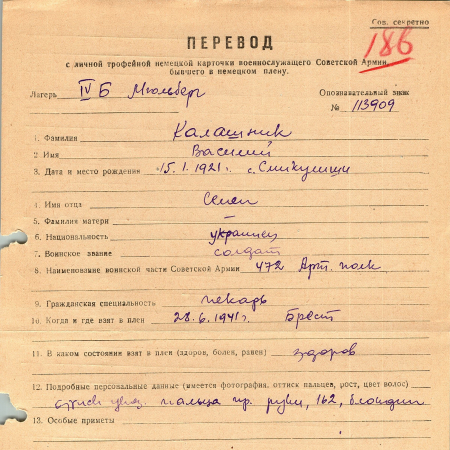 Сов. секретно
186
ПЕРЕВОД
с личной трофейной немецкой карточки военнослужащего Советской Армии,
бывшего в немецком плену.
Лагерь IV Б Мюльберг Опознавательный знак
№ 113909
1. Фамилия Калашник
2. Имя Василий
3. Дата и место рождения 15.1.1921г. с.
4. Имя отца Семен
5. Фамилия матери –
6. Национальность украинец
7. Воинское звание солдат
8. Наименование воинской части Советской Армии 472 Арт. полк
9. Гражданская специальность пекарь
10. Когда и где взят в плен 28.6.1941г. Брест
11. В каком состоянии взят в плен (здоров, болен, ранен) здоров
12. Подробные персональные данные (имеется фотография, оттиск пальцев, рост, цвет волос)
оттиск указ. пальца пр. руки, 162, блондин
13. Особые приметы